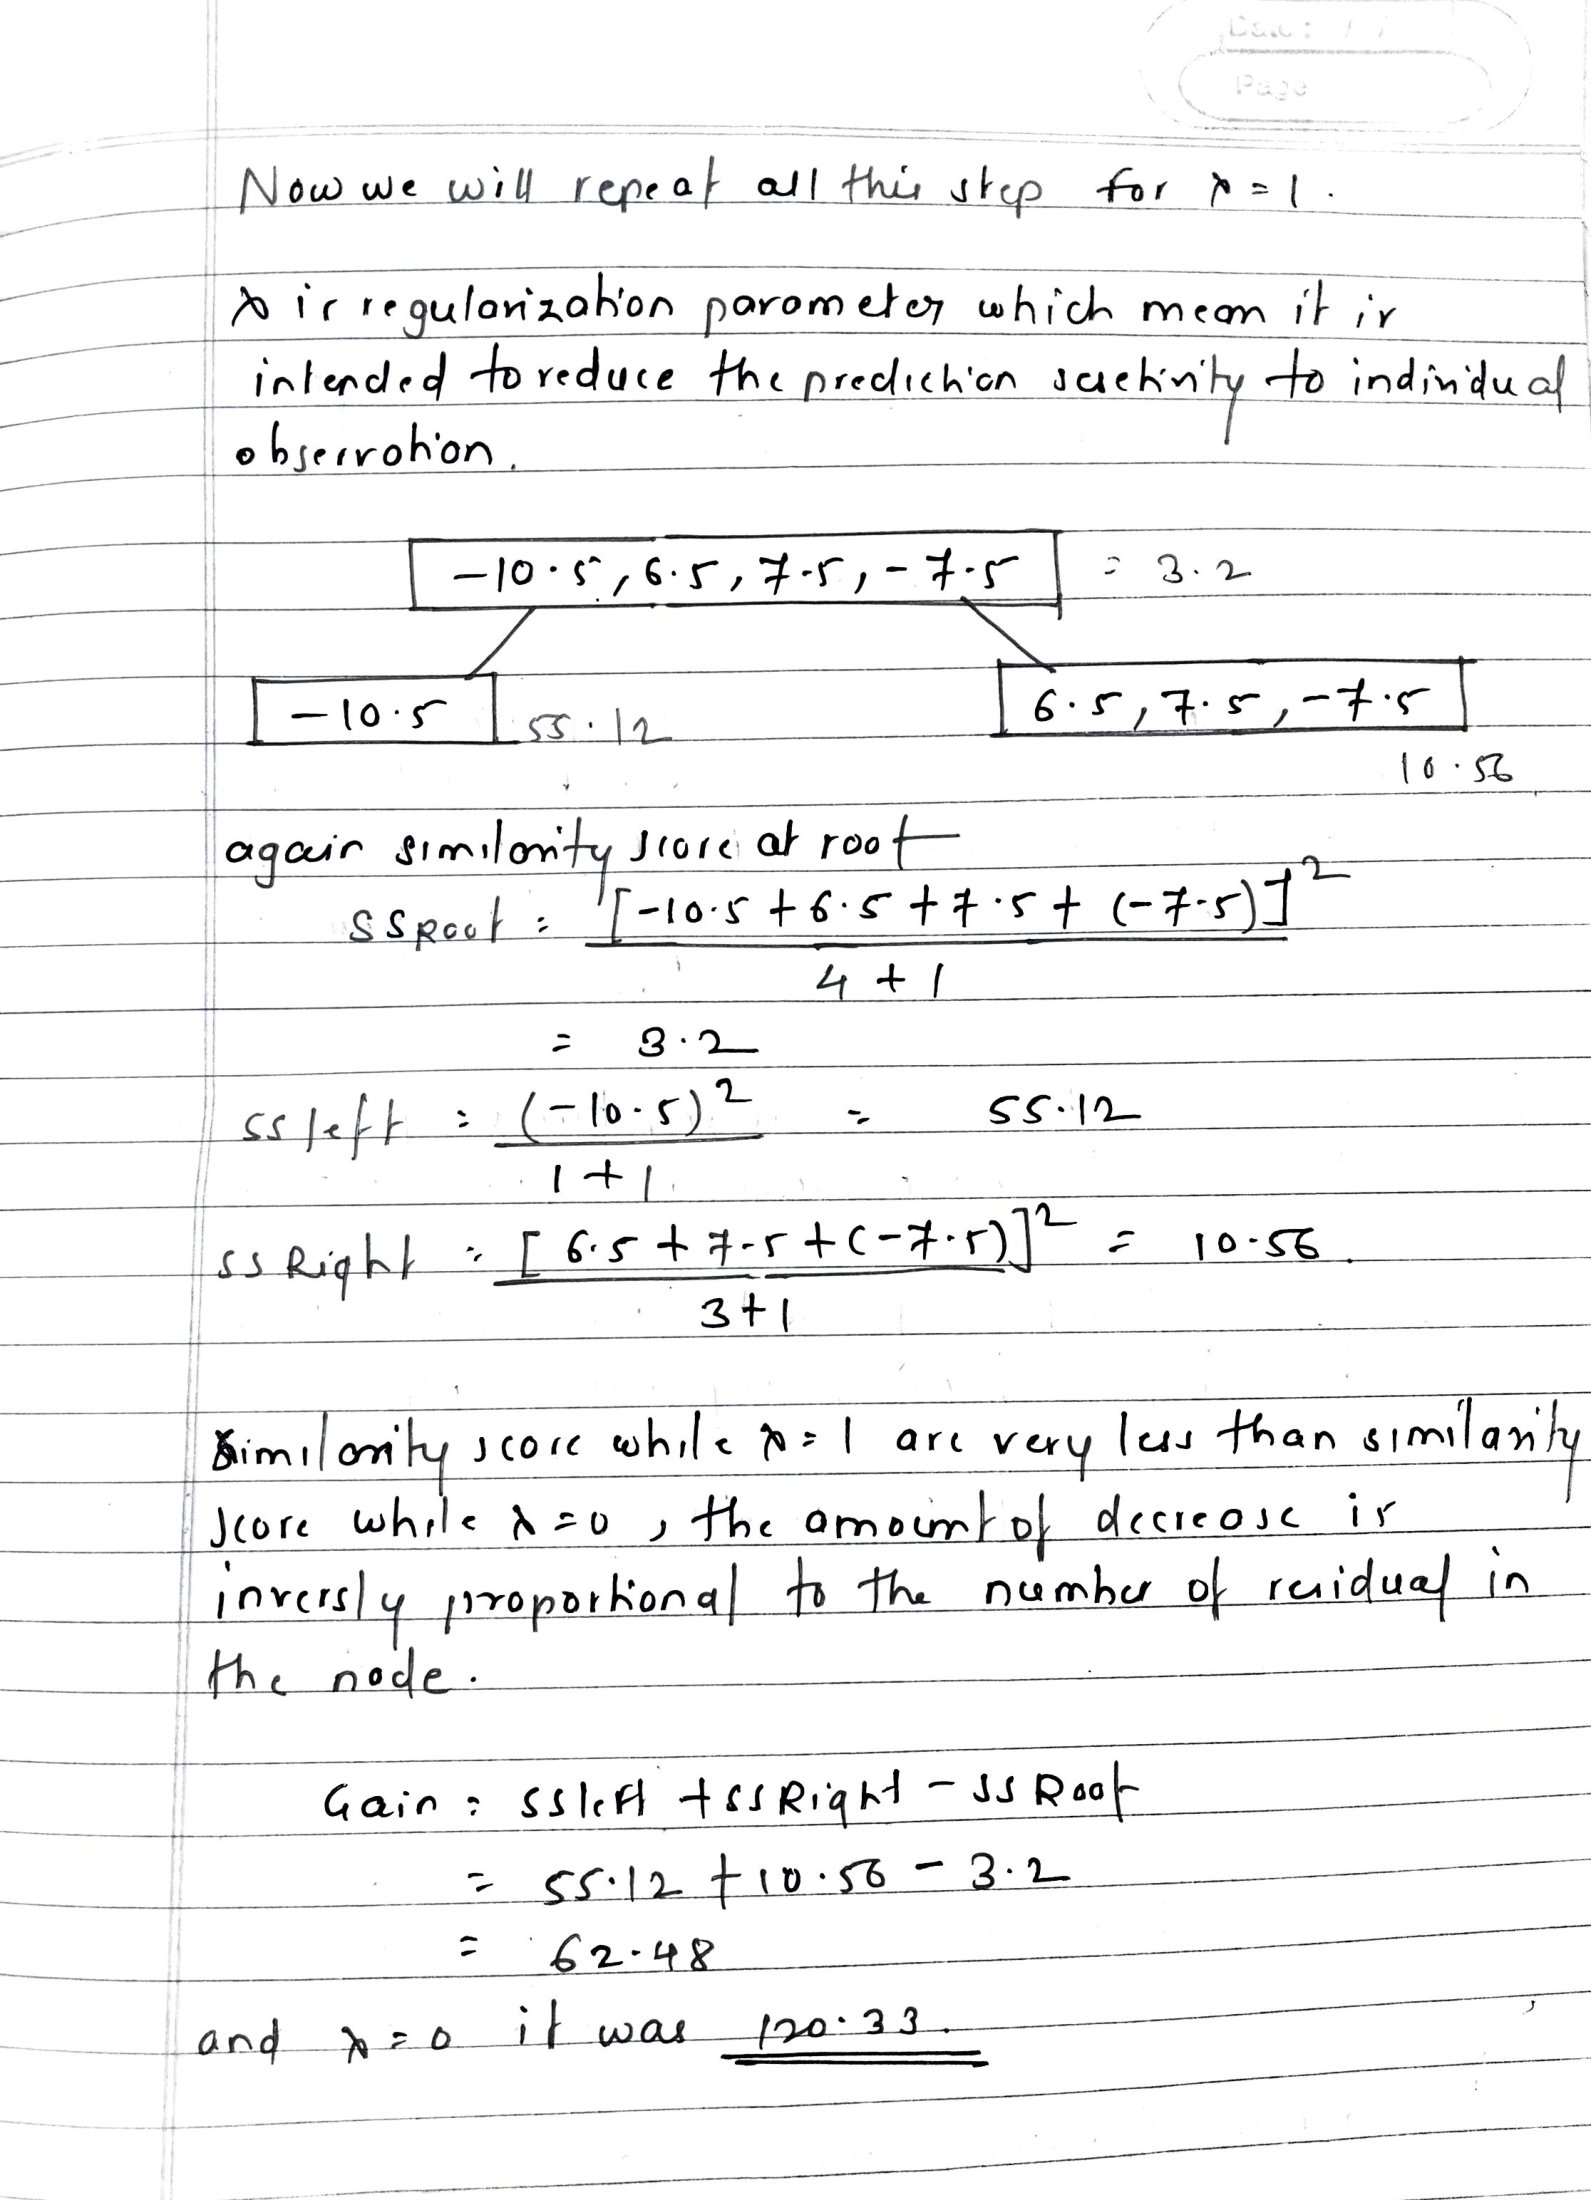 Date: / /
Page
Now we will repeat all this step for λ = 1.
λ is regularization parameter which mean it is
intended to reduce the prediction to individual
observation.
-10.5, 6.5, 7.5, -7.5 = 3.2
-10.5 55.12 6.5, 7.5, -7.5
10.56
again similarity score at root
SS Root = [-10.5 + 6.5 + 7.5 + (-7.5)]²
4 + 1
= 3.2
ss left = (-10.5)² = 55.12
1 + 1
ss Right = [6.5 + 7.5 + (-7.5)]² = 10.56.
3 + 1
Similarity score while λ = 1 are very less than similarity
score while λ = 0, the amount of decrease is
inversly proportional to the number of residual in
the node.
Gain = ss left + ss Right - ss Root
= 55.12 + 10.56 - 3.2
= 62.48
and λ = 0 it was 120.33.